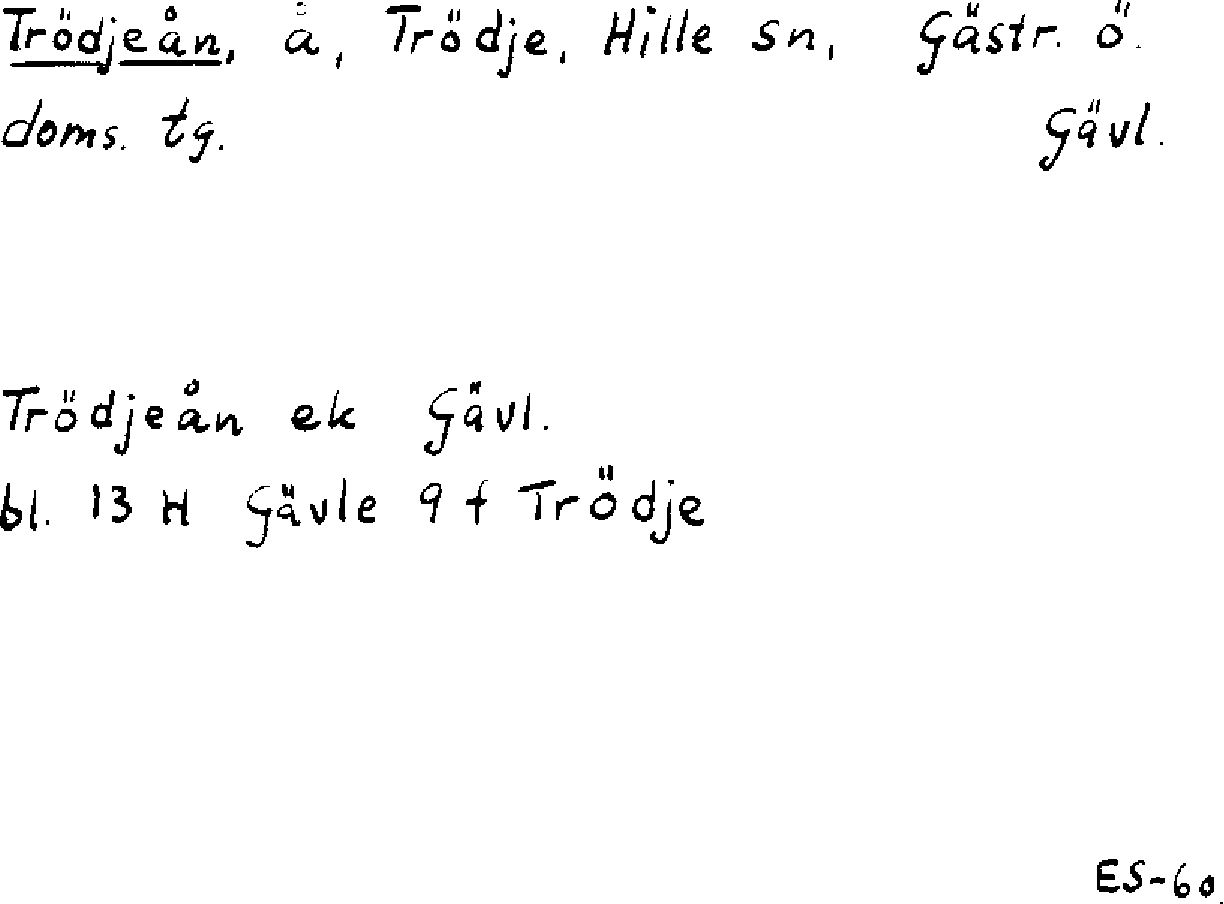 Trödjeån, å, Trödje, Hille sn, Gästr. ö.
doms. tg. Gävl.
Trödjeån ek Gävl.
bl. 13 H Gävle 9 f Trödje
ES-60